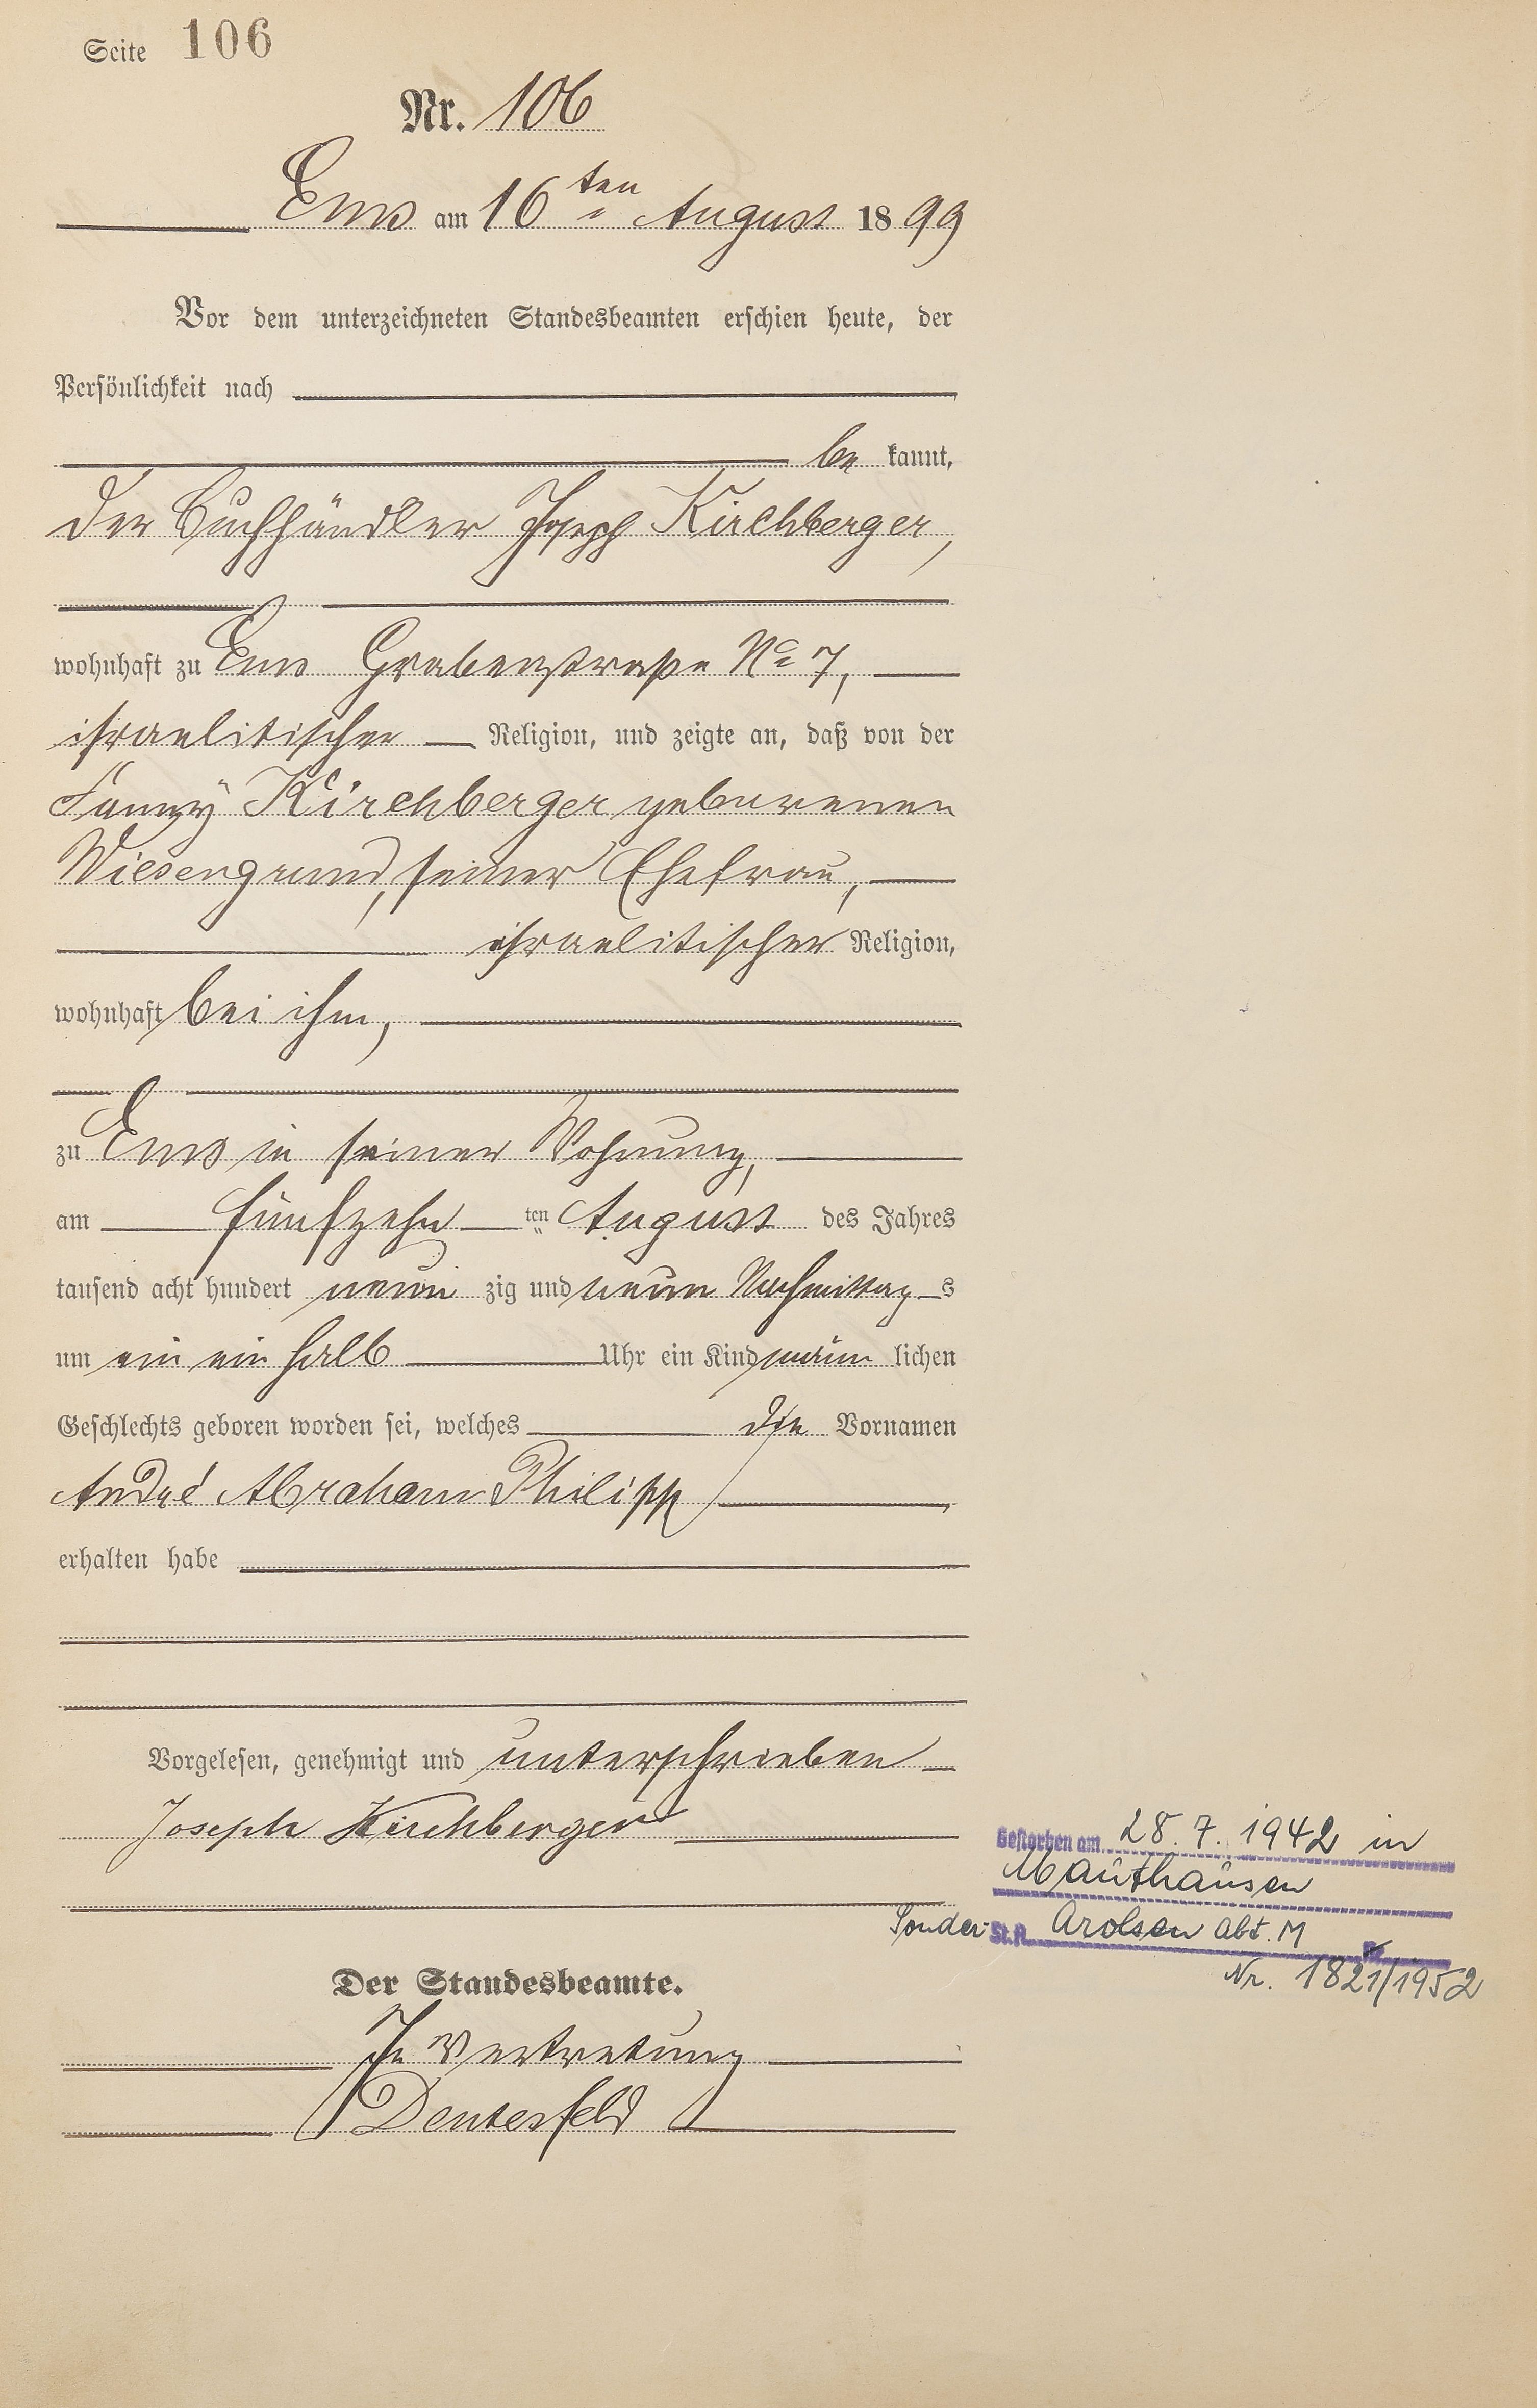 Seite 106
Nr. 106
Ems am 16ten August 1899
Vor dem unterzeichneten Standesbeamten erschien heute, der
Persönlichkeit nach
be kannt,
der Buchhändler Joseph Kirchberger,
wohnhaft zu Ems Grabenstraße No 7,
israelitischer Religion, und zeigte an, daß von der
Fanny Kirchberger geborenen
Wiesengrund, seiner Ehefrau,
israelitischer Religion,
wohnhaft bei ihm,
zu Ems in seiner Wohnung,
am fünfzehn ten August des Jahres
tausend acht hundert neun zig und neun Nachmittag s
um ein ein halb Uhr ein Kind männ lichen
Geschlechts geboren worden sei, welches die Vornamen
André Abraham Philipp
erhalten habe
Vorgelesen, genehmigt und unterschrieben
Joseph Kirchberger
Gestorben am 28. 7. 1942 in
Mauthausen
Sonder St.A. Arolsen Abt. M
Nr. 1821/1952
Der Standesbeamte.
In Vertretung